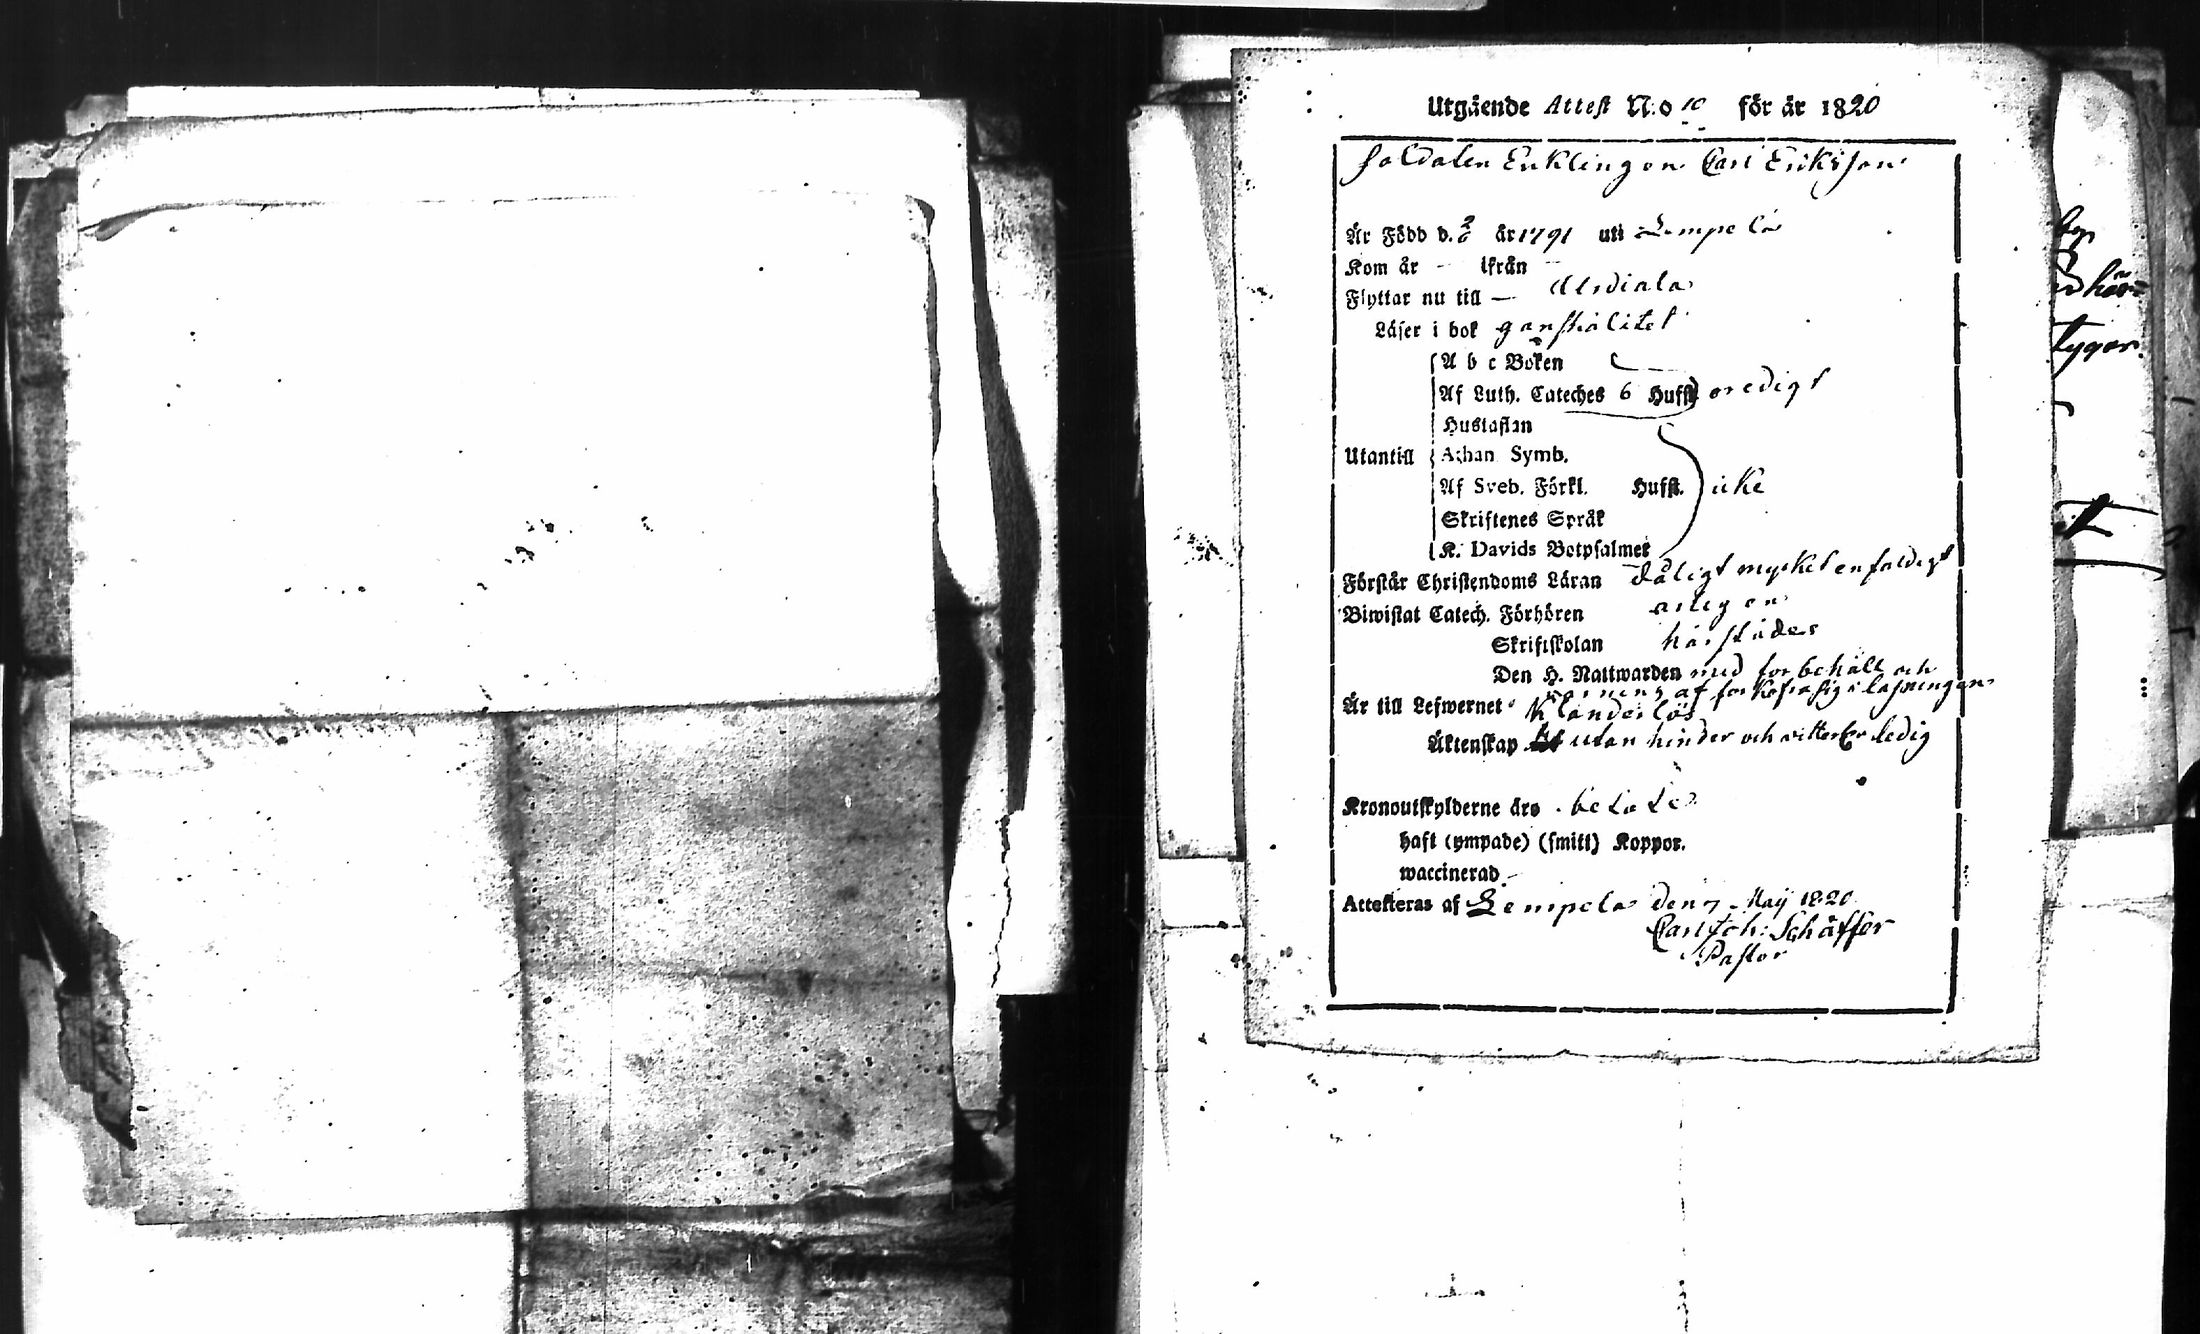 Utgående Attest N:o 10 för år 1820
Soldaten Enklingen Carl Eriksson
Är Född d. 2/6 år 1791 uti Lempelä
Kom år - ifrån -
Flyttar nu till — Urdiala
Läser i bok ganska litet
A b c Boken
Af Luth. Cateches 6 Hufst. oredigt
Hustaflan
Utantill Athan Symb.
Af Sveb. Förkl. Hufst. icke
Skriftenes Språk
K. Davids Botpsalmer
Förstår Christendoms Läran dåligt mycket enfaldigt
Biwistat Catech. Förhören
Skriftskolan härstädes
Den H. Nattwarden med förbehåll och
af läsningen
Är till Lefwernet Klanderlös
Äktenskap utan hinder och ledig
Kronoutskylderne äro betalte
haft (ympade) (smitt) Koppor.
waccinerad -
Attesteras af Lempelä den 7 Maij 1820
Carl Joh: Schäffer
Pastor